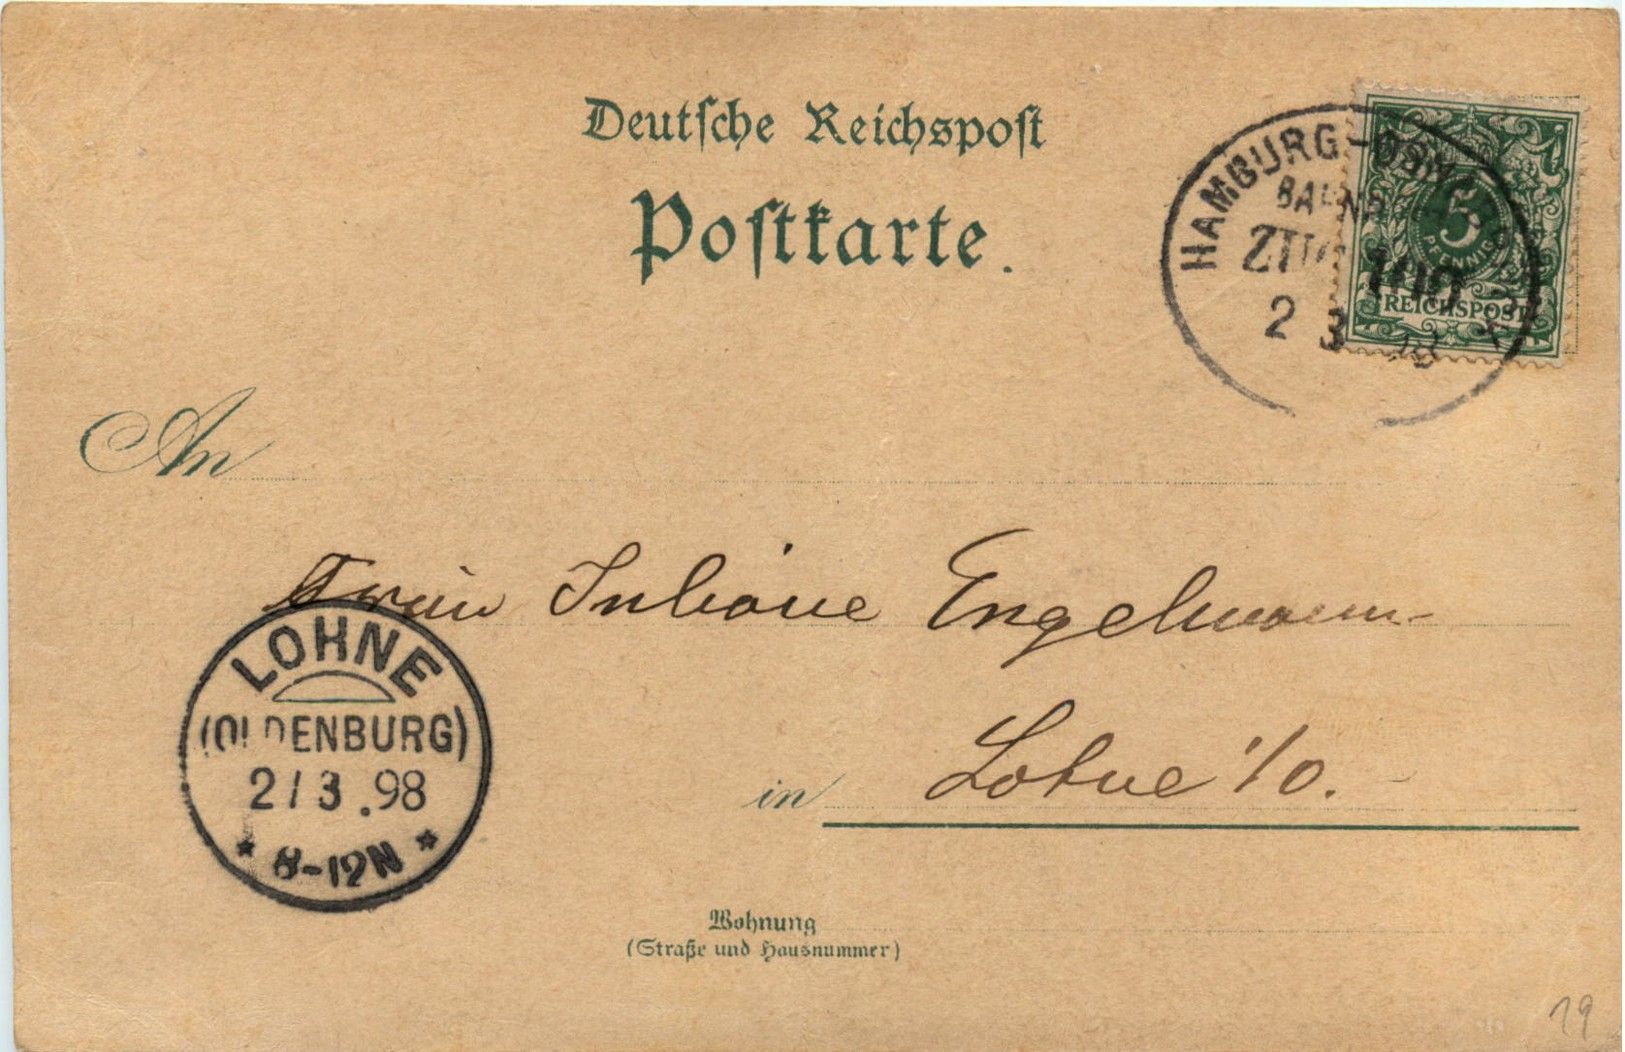 Deutsche Reichspost
Postkarte.
HAMBURG-OSN
BAHNP
ZUG 190
2 3 98
5
PFENNIG
REICHSPOST
An
Frau Juliane Engelmann
in Lohne i/O.
LOHNE
(OLDENBURG)
2/3.98
* 8-12N *
Wohnung
(Straße und Hausnummer)
19